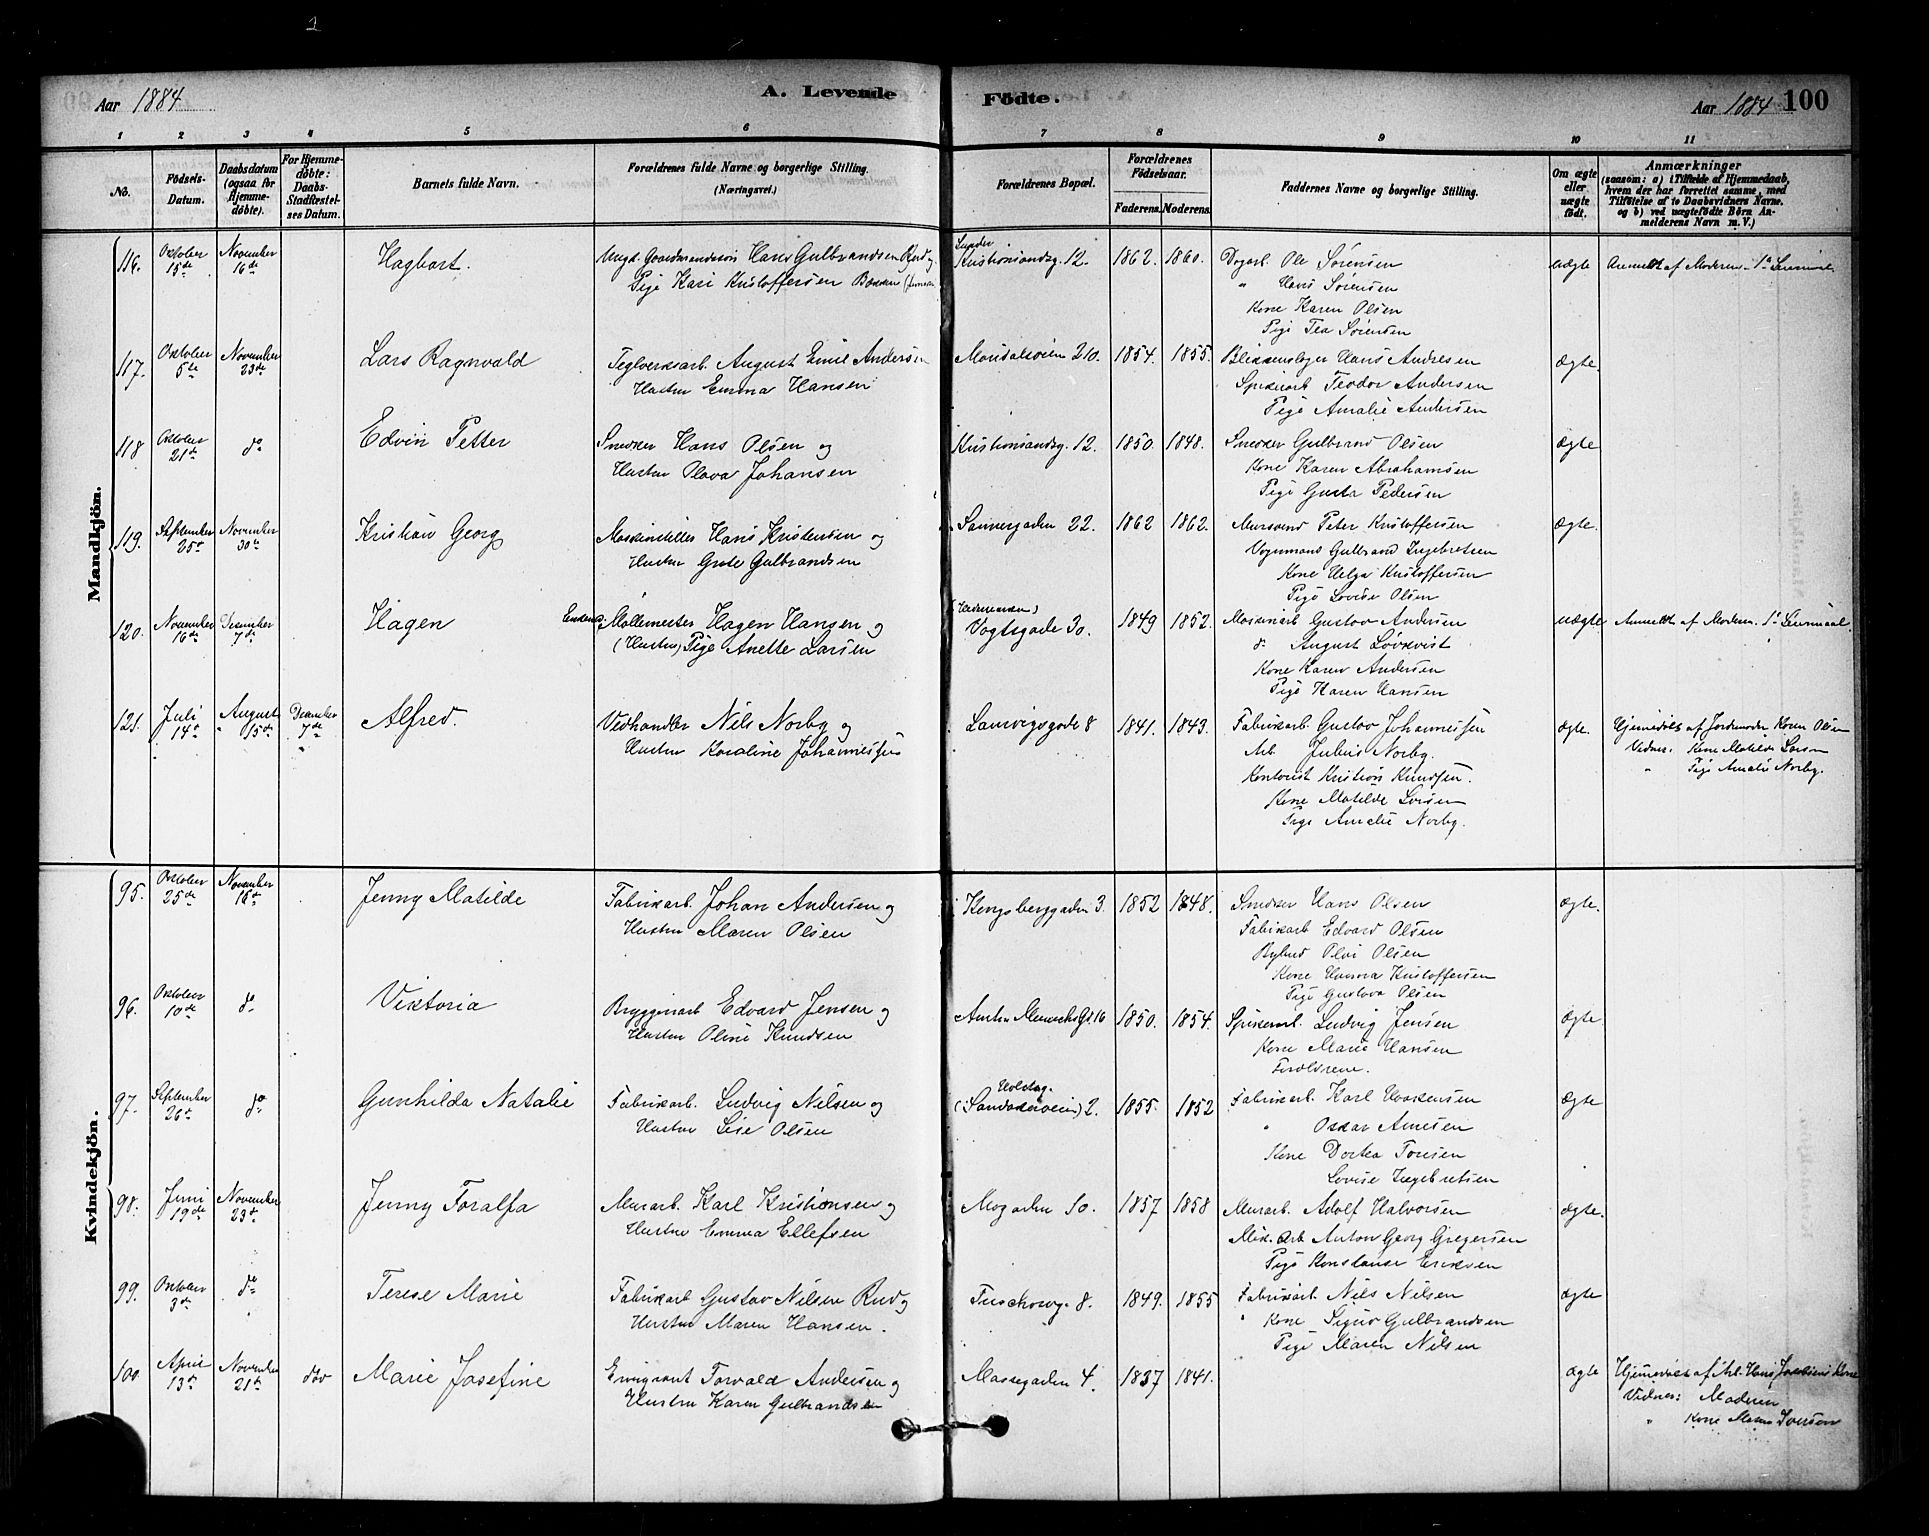 1
Aar 1884
A. Levende
Födte.
Aar 1884
100
1 2 3 4 5 6 7 8 9 10 11
No.
Födsels-
Datum.
Daabsdatum
(ogsaa for
Hjemme-
döbte).
For Hjemme-
döbte:
Daabs-
Stadfæstel-
ses Datum.
Barnets fulde Navn.
Forældrenes fulde Navne og borgerlige Stilling.
(Næringsvei.)
Forældrenes Bopæl.
Forældrenes
Födselsaar.
Faderens.
Moderens.
Faddernes Navne og borgerlige Stilling.
Om ægte
eller
uægte
født.
Anmærkninger
(saasom: a) i Tilfælde af Hjemmedaab,
hvem der har forrettet samme, med
Tilföielse af to Daabsvidners Navne.
og b) ved uægtefödte Börn An-
melderens Navn m. V.)
Mandkjön.
116. Oktober 15de November 16de Hagbart. Ungk. Hans Gulbrandsen Rud og
Pige Kari Kristoffersen Bakken
Kristiansandsg. 12. 1862. 1860. Ole Sörensen
" Hans Sörensen
Kone Karen Olsen
Pige Tea Sörensen
uægte Anmeldt af Moderen
117. Oktober 5te November 23de Lars Ragnvald Teglverksarb. August Emil Andersen
Hustru Emma Hansen
210. 1854. 1855. Hans Andresen
Teodor Andersen
Pige Amalie Andersen
ægte.
118 Oktober 21de do Edvin Petter Snedker Hans Olsen og
Hustru Olava Johansen
Kristiansandsg. 12. 1850. 1848. Snedker Gulbrand Olsen
Kone Karen Abrahamsen
Pige Gusta Pedersen
ægte
119. September 25de November 30te Kristian Georg Hans Kristensen og
Hustru Grete Gulbrandsen
Sannergaden 22. 1862 1862. Mursvend Peter Kristoffersen
Vognmand Gulbrand Ingebretsen
Kone Helga Kristoffersen
Pige Lovise Olsen
ægte.
120. November 16de December 7de Hagen Möllemester Hagen Hansen og
(Hustru) Pige Anette Larsen
(Hedemarken)
Vogtsgade 30. 1849 1852. Maskinarb Gustav Andersen
do August Lövkvist
Kone Karen Andersen
Pige Karen Hansen
uægte Anmeldt af Moderen. 1ste Leiermaal
121. Juli 14de August 15de December 7de Alfred. Vedhandler Nils Norby og
Hustru Karoline Johannessen
Laurvigsgade 8 1841. 1843. Fabrikarb. Gustav Johannessen
Arb. Julius Norby.
Kontorist Kristian Knudsen.
Kone Matilde Larsen
Pige Amalie Norby.
ægte. Hjemmedöbt af Jordemoder Karen Olsen
Vidner: Kone Matilde Larsen
" Pige Amalie Norby.
Kvindekjön.
95. Oktober 25de November 16de Jenny Matilde Fabrikarb. Johan Andersen og
Hustru Maren Olsen
Kongsberggaden 3. 1852 1848. Snedker Hans Olsen
Fabrikarb Edvard Olsen
Bybud Olai Olsen
Kone Hanna Kristoffersen
Pige Gustava Olsen
ægte.
96. Oktober 10de do Viktoria Bryggeriarb Edvard Jensen og
Hustru Oline Knudsen
16 1850. 1854. Ludvig Jensen
Kone Marie Hansen
Forældrene.
ægte.
97. September 26de do Gunhilda Natalie Fabrikarb. Ludvig Nilsen og
Hustru Lise Olsen
Holstsg.
(Sandakerveien) 2. 1855. 1852 Fabrikarb. Karl Haakensen
" Oskar Arnesen
Kone Dortea Tonesen
Lovise Ingebretsen
ægte
98. Juni 19de November 23de Jenny Toralfa Murarb. Karl Kristiansen og
Hustru Emma Ellefsen
Mogaden 10. 1857 1858 Murarb. Adolf Halvorsen
Arb Anton Georg Gregersen
Pige Konstanse Eriksen
ægte.
99. Oktober 3de do Terese Marie Fabrikarb Gustav Nilsen Rud og
Hustru Maren Hansen.
8. 1849. 1855 Fabrikarb Nils Nilsen
" Kone Sigrid Gulbrandsen
Pige Maren Nilsen
ægte
100. April 13de November 21de död Marie Josefine Emigrant Torvald Andersen og
Hustru Karen Gulbrandsen
Mossegaden 4. 1837 1841. ægte Hjemmedöbt af Arb. Hans Jacobsens Kone
Vidner: Moderen
" Kone Iversen